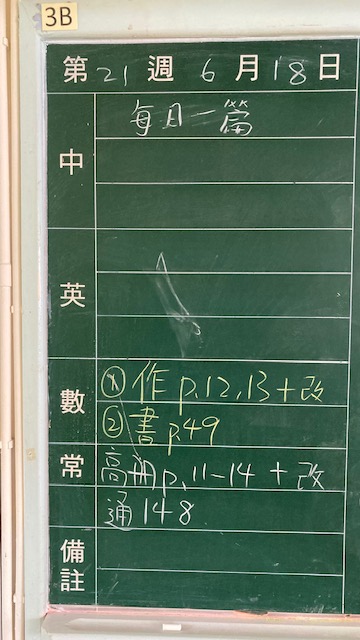 3B
第 21 週 6 月 18 日
中
每日一篇
英
數
① 作 p.12,13 + 改
② 書 p49
常
高冊 p.11-14 + 改
通 148
備註